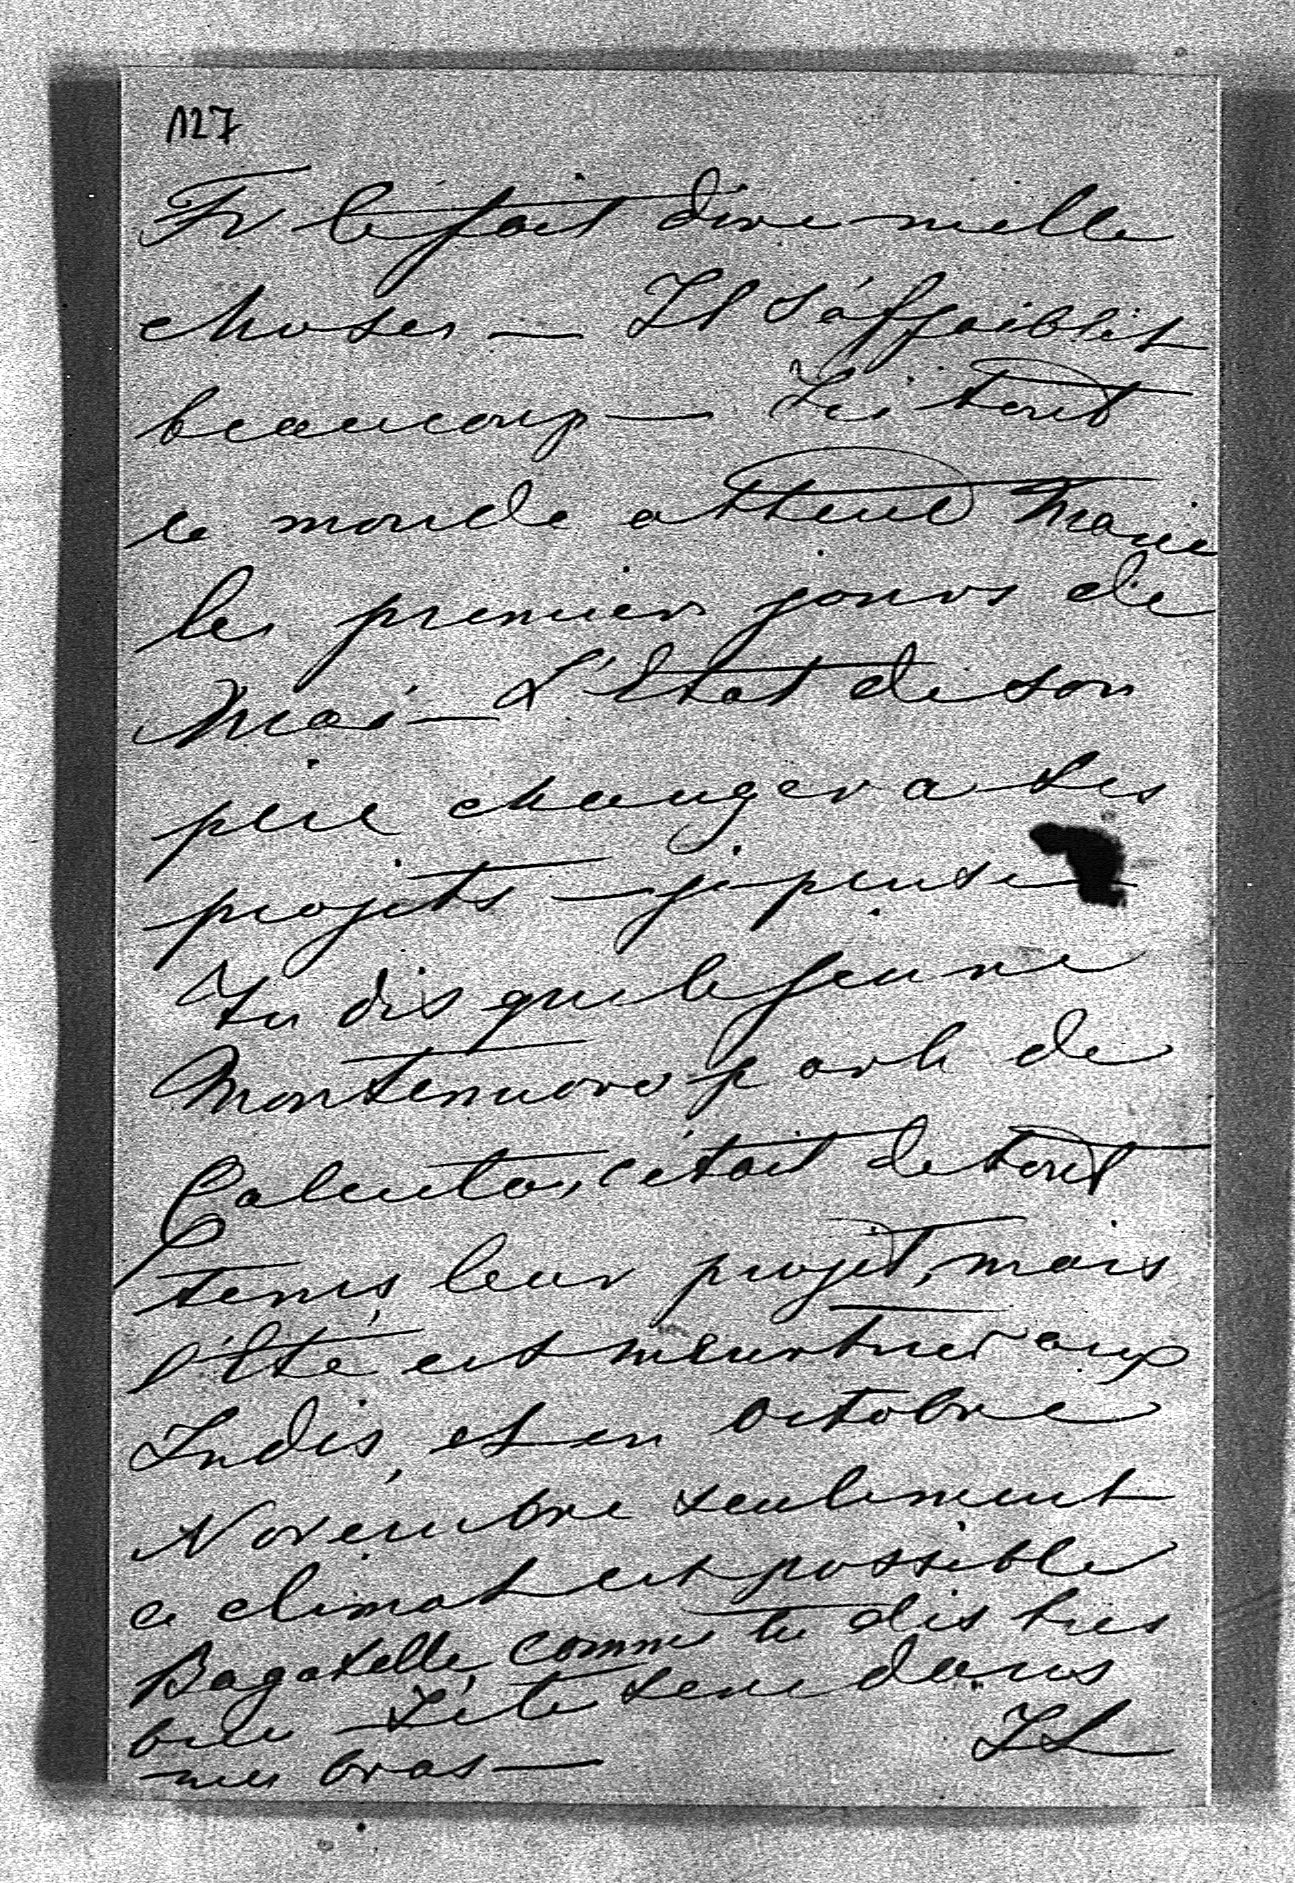 127
Fr te fait dire mille
choses — Il s'affaiblit
beaucoup — Ici tout
le monde attend Marie
les premiers jours de
Mai — L'Etat de son
père changera ses
projets — je pense
Tu dis que le jeune
Montenuovo parle de
Calcuta, c'était de tout
tems leur projet, mais
l'Eté est meurtrier aux
Indes, et en octobre
Novembre seulement
ce climat est possible
Bagatelle, comme tu dis très
bien — Je te serre dans
mes bras —